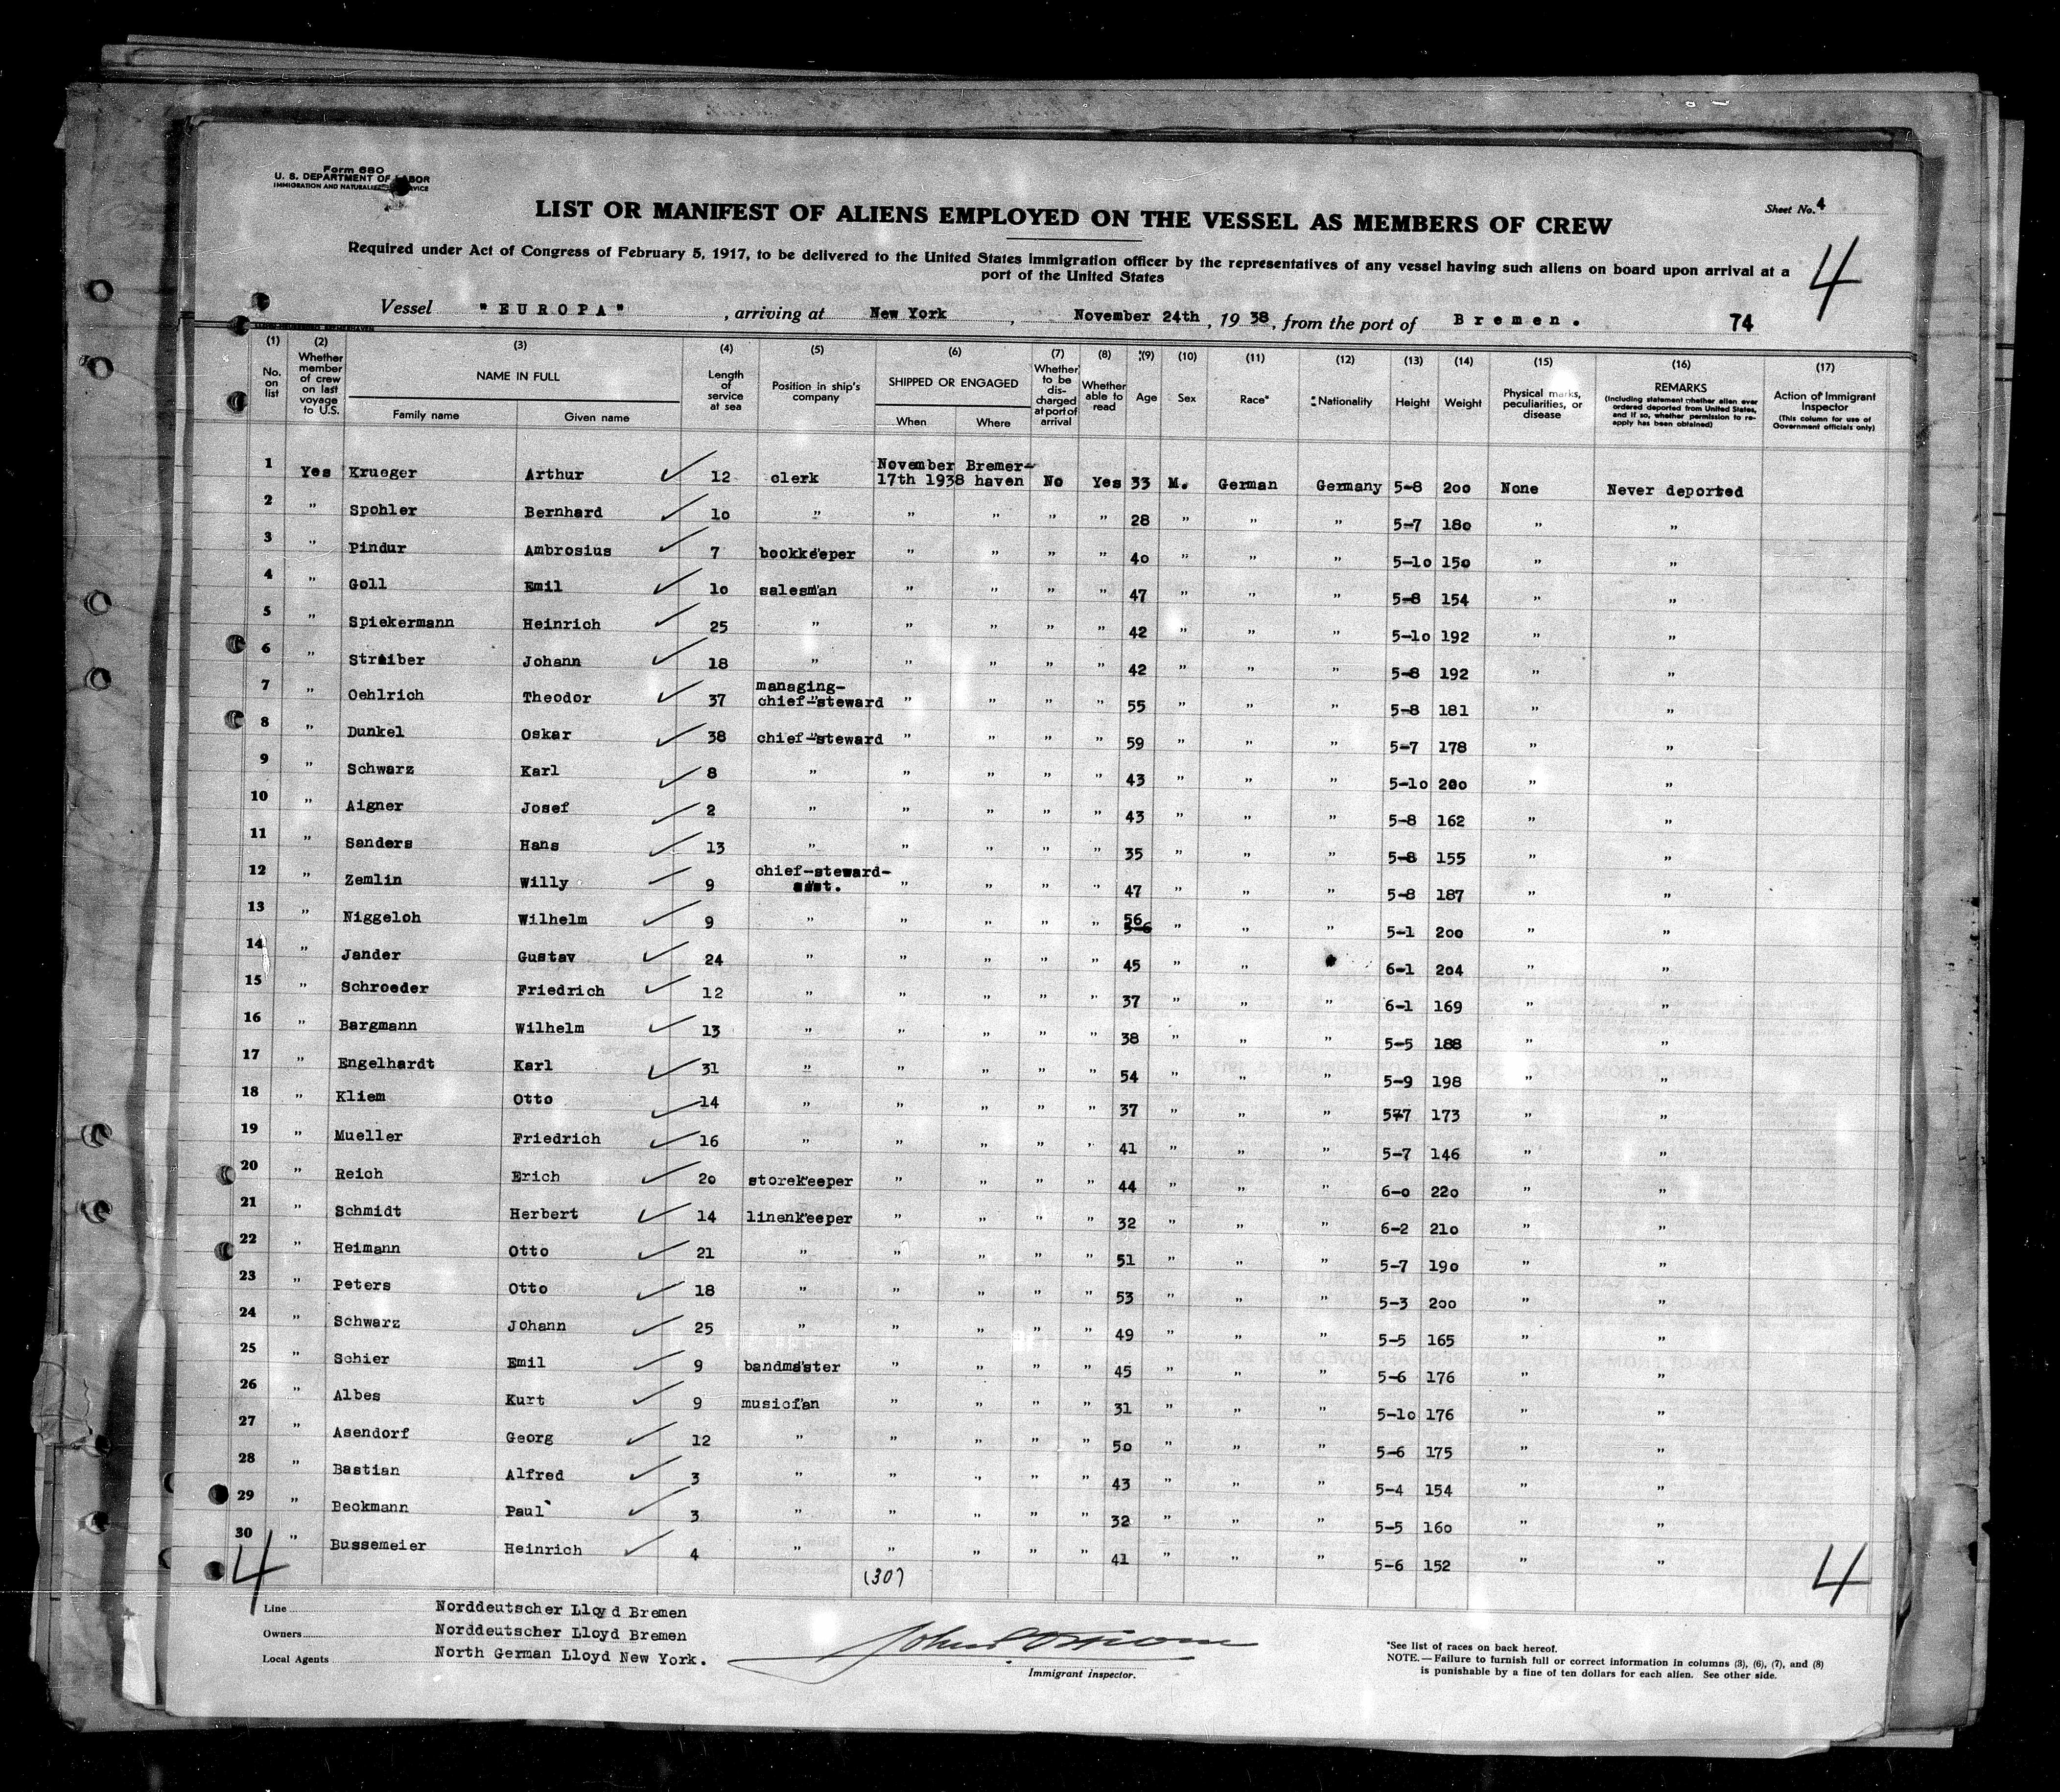 Form 680
U. S. DEPARTMENT OF LABOR
IMMIGRATION AND NATURALIZATION SERVICE
Sheet No. 4
LIST OR MANIFEST OF ALIENS EMPLOYED ON THE VESSEL AS MEMBERS OF CREW
Required under Act of Congress of February 5, 1917, to be delivered to the United States Immigration officer by the representatives of any vessel having such aliens on board upon arrival at a
port of the United States
4
Vessel "EUROPA", arriving at New York, November 24th, 1938, from the port of Bremen. 74
(1) No. on list (2) Whether member of crew on last voyage to U.S. (3) NAME IN FULL Family name Given name (4) Length of service at sea (5) Position in ship's company (6) SHIPPED OR ENGAGED When Where (7) Whether to be discharged at port of arrival (8) Whether able to read (9) Age (10) Sex (11) Race* (12) Nationality (13) Height (14) Weight (15) Physical marks, peculiarities, or disease (16) REMARKS (Including statement whether alien ever ordered deported from United States, and if so, whether permission to re-apply has been obtained) (17) Action of Immigrant Inspector (This column for use of Government officials only)
1 Yes Krueger Arthur 12 clerk November 17th 1938 Bremer-haven No Yes 33 M. German Germany 5-8 200 None Never deported
2 " Spohler Bernhard 10 " " " " " 28 " " " 5-7 180 " "
3 " Pindur Ambrosius 7 bookkeeper " " " " 40 " " " 5-10 150 " "
4 " Goll Emil 10 salesman " " " " 47 " " " 5-8 154 " "
5 " Spiekermann Heinrich 25 " " " " " 42 " " " 5-10 192 " "
6 " Streiber Johann 18 " " " " " 42 " " " 5-8 192 " "
7 " Oehlrich Theodor 37 managing-chief-steward " " " " 55 " " " 5-8 181 " "
8 " Dunkel Oskar 38 chief-steward " " " " 59 " " " 5-7 178 " "
9 " Schwarz Karl 8 " " " " " 43 " " " 5-10 200 " "
10 " Aigner Josef 2 " " " " " 43 " " " 5-8 162 " "
11 " Sanders Hans 13 " " " " " 35 " " " 5-8 155 " "
12 " Zemlin Willy 9 chief-steward-asst. " " " " 47 " " " 5-8 187 " "
13 " Niggeloh Wilhelm 9 " " " " " 56 5-6 " " " 5-1 200 " "
14 " Jander Gustav 24 " " " " " 45 " " " 6-1 204 " "
15 " Schroeder Friedrich 12 " " " " " 37 " " " 6-1 169 " "
16 " Bargmann Wilhelm 13 " " " " " 38 " " " 5-5 188 " "
17 " Engelhardt Karl 31 " " " " " 54 " " " 5-9 198 " "
18 " Kliem Otto 14 " " " " " 37 " " " 5-7 173 " "
19 " Mueller Friedrich 16 " " " " " 41 " " " 5-7 146 " "
20 " Reich Erich 20 storekeeper " " " " 44 " " " 6-0 220 " "
21 " Schmidt Herbert 14 linenkeeper " " " " 32 " " " 6-2 210 " "
22 " Heimann Otto 21 " " " " " 51 " " " 5-7 190 " "
23 " Peters Otto 18 " " " " " 53 " " " 5-3 200 " "
24 " Schwarz Johann 25 " " " " " 49 " " " 5-5 165 " "
25 " Schier Emil 9 bandmaster " " " " 45 " " " 5-6 176 " "
26 " Albes Kurt 9 musician " " " " 31 " " " 5-10 176 " "
27 " Asendorf Georg 12 " " " " " 50 " " " 5-6 175 " "
28 " Bastian Alfred 3 " " " " " 43 " " " 5-4 154 " "
29 " Beckmann Paul 3 " " " " " 32 " " " 5-5 160 " "
30 " Bussemeier Heinrich 4 " " " " " 41 " " " 5-6 152 " "
4 (30) 4
Line Norddeutscher Lloyd Bremen
Owners Norddeutscher Lloyd Bremen
Local Agents North German Lloyd New York.
Immigrant Inspector.
*See list of races on back hereof.
NOTE.—Failure to furnish full or correct information in columns (3), (6), (7), and (8)
is punishable by a fine of ten dollars for each alien. See other side.